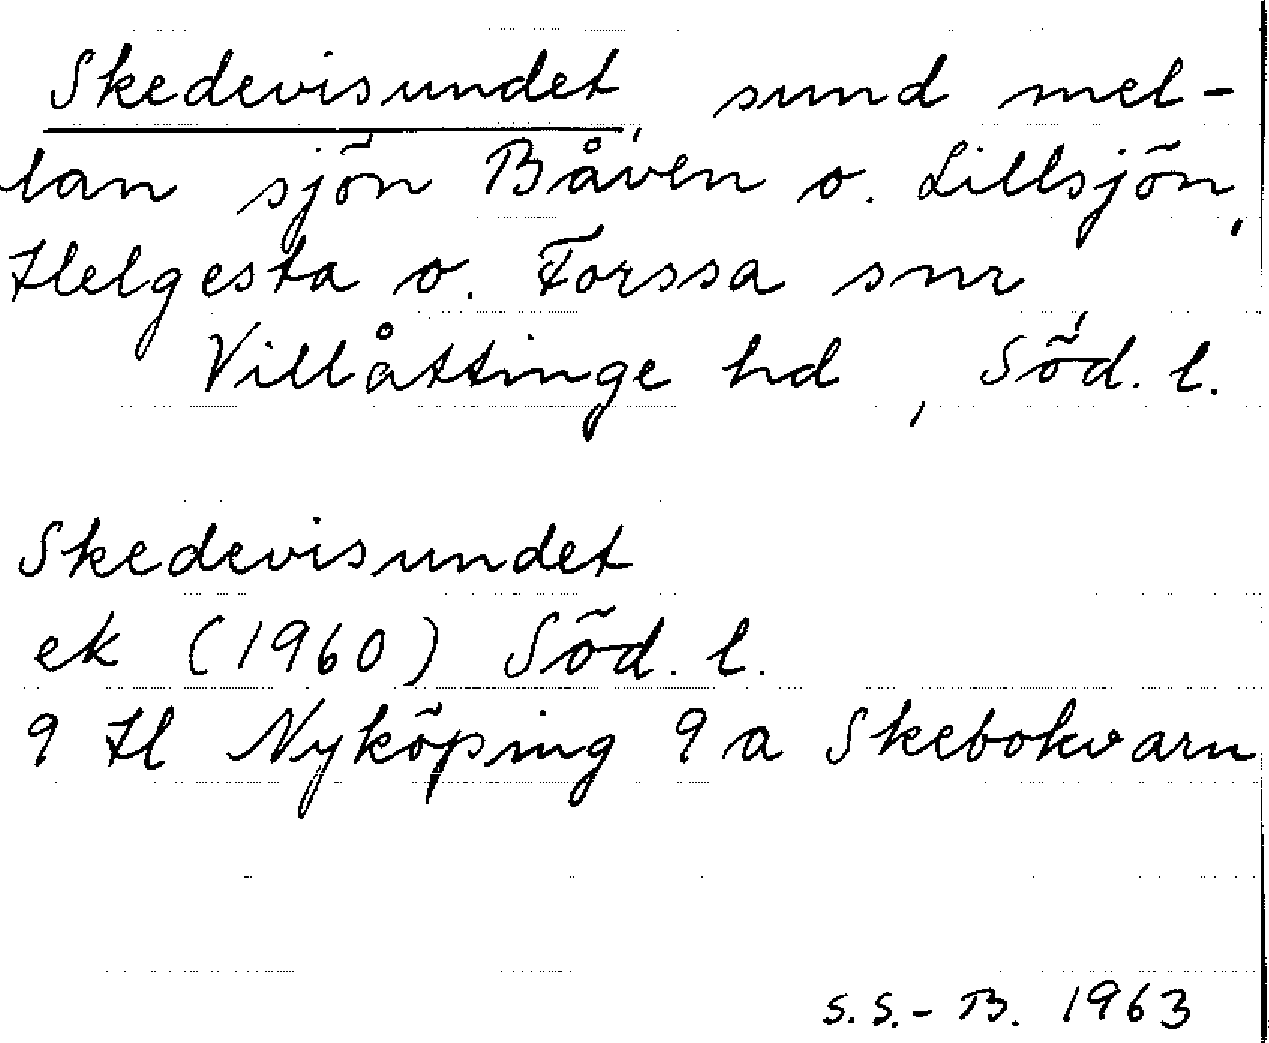 Skedevisundet, sund mel-
lan sjön Båven o. Lillsjön,
Helgesta o. Forssa snr,
Villåttinge hd, Söd. l.
Skedevisundet
ek (1960) Söd. l.
9 H Nyköping 9 a Skebokvarn
S.S.-B. 1963